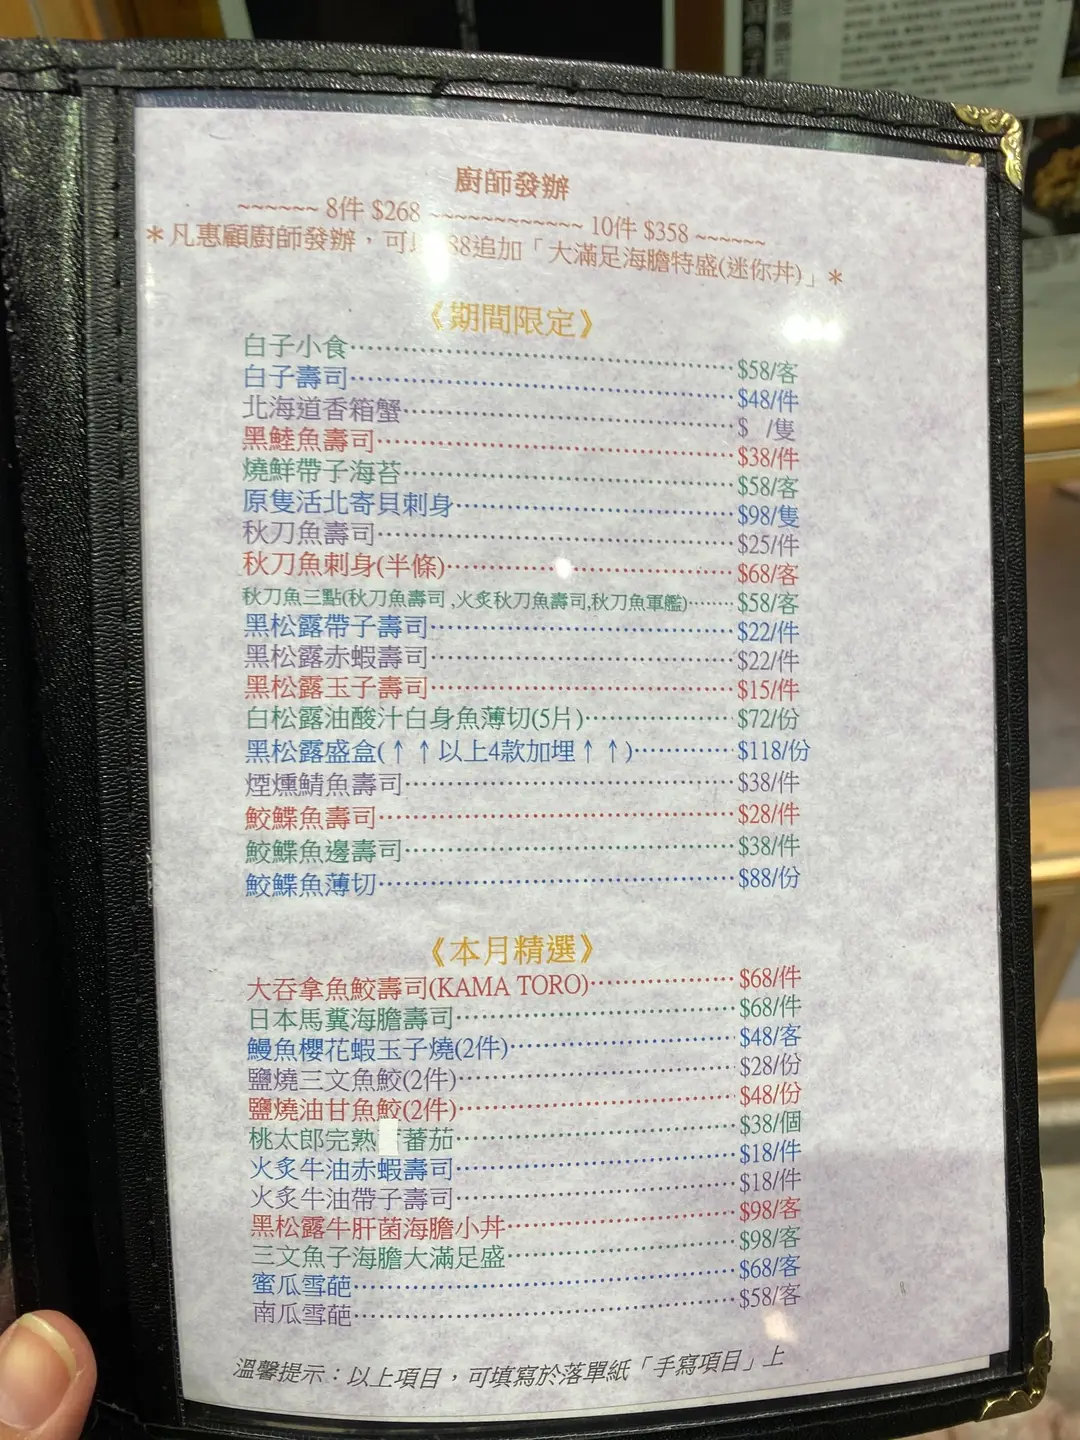 廚師發辦
~~~~~~ 8件 $268 ~~~~~~~~~~~~ 10件 $358 ~~~~~~
＊凡惠顧廚師發辦，可 88追加「大滿足海膽特盛(迷你丼)」＊
《期間限定》
白子小食 $58/客
白子壽司 $48/件
北海道香箱蟹 $ /隻
黑鯥魚壽司 $38/件
燒鮮帶子海苔 $58/客
原隻活北寄貝刺身 $98/隻
秋刀魚壽司 $25/件
秋刀魚刺身(半條) $68/客
秋刀魚三點(秋刀魚壽司,火炙秋刀魚壽司,秋刀魚軍艦) $58/客
黑松露帶子壽司 $22/件
黑松露赤蝦壽司 $22/件
黑松露玉子壽司 $15/件
白松露油酸汁白身魚薄切(5片) $72/份
黑松露盛盒(↑↑以上4款加埋↑↑) $118/份
煙燻鯖魚壽司 $38/件
鮫鰈魚壽司 $28/件
鮫鰈魚邊壽司 $38/件
鮫鰈魚薄切 $88/份
《本月精選》
大吞拿魚鮫壽司(KAMA TORO) $68/件
日本馬糞海膽壽司 $68/件
鰻魚櫻花蝦玉子燒(2件) $48/客
鹽燒三文魚鮫(2件) $28/份
鹽燒油甘魚鮫(2件) $48/份
桃太郎完熟 蕃茄 $38/個
火炙牛油赤蝦壽司 $18/件
火炙牛油帶子壽司 $18/件
黑松露牛肝菌海膽小丼 $98/客
三文魚子海膽大滿足盛 $98/客
蜜瓜雪葩 $68/客
南瓜雪葩 $58/客
溫馨提示：以上項目，可填寫於落單紙「手寫項目」上